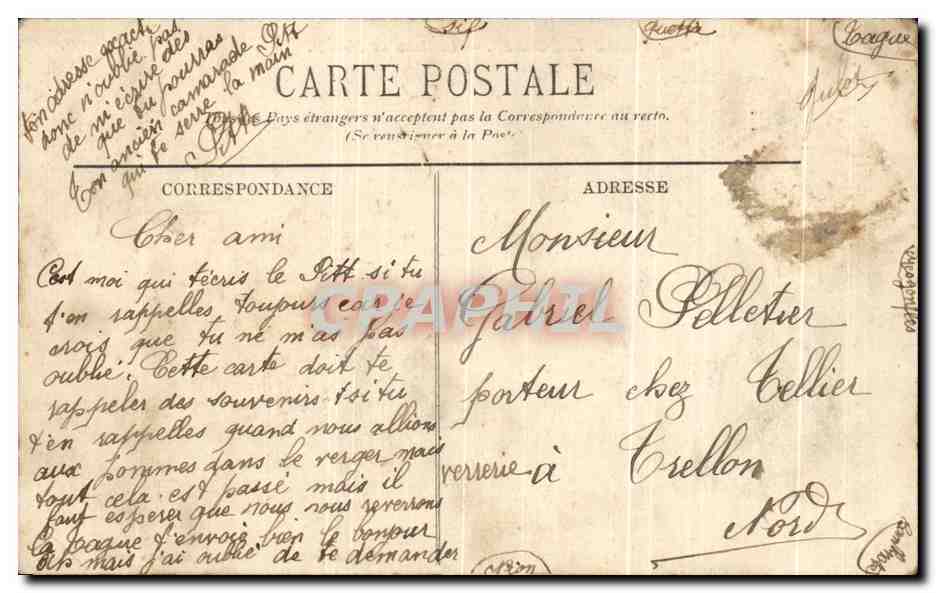 ton adresse exacte
donc n'oublie pas
de m'écrire dès
que tu pourras
Ton ancien camarade Pitt
qui te serre la main
Pitt
sif
Tague
CARTE POSTALE
Tous les Pays étrangers n'acceptent pas la Correspondance au recto.
(Se renseigner à la Poste)
CORRESPONDANCE
Cher ami
C'est moi qui t'écris le Pitt si tu
t'en rappelles toujours car je
crois que tu ne m'as pas
oublié. Cette carte doit te
rappeler des souvenirs t si tu
t'en rappelles quand nous allions
aux pommes dans le verger mais
tout cela est passé mais il
faut espérer que nous nous reverrons
La Tague t'envoie bien le bonjour
mais j'ai oublié de te demander
ADRESSE
Monsieur
Gabriel Pelletier
porteur chez Tellier
verrerie à Trellon
Nord
CPAPHIL